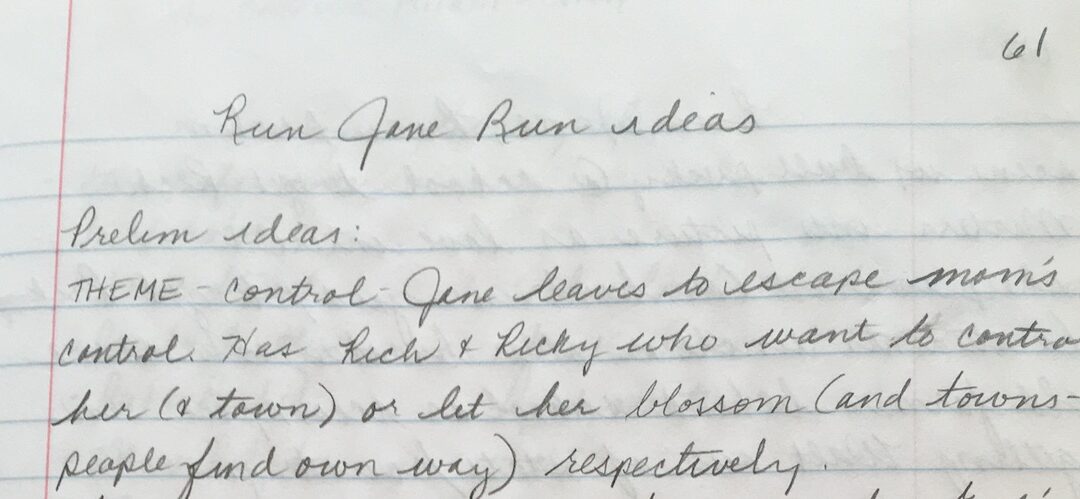 61
Run Jane Run ideas
Prelim ideas:
THEME - control - Jane leaves to escape mom's
control. Has Rich & Ricky who want to contro
her (& town) or let her blossom (and towns-
people find own way) respectively.